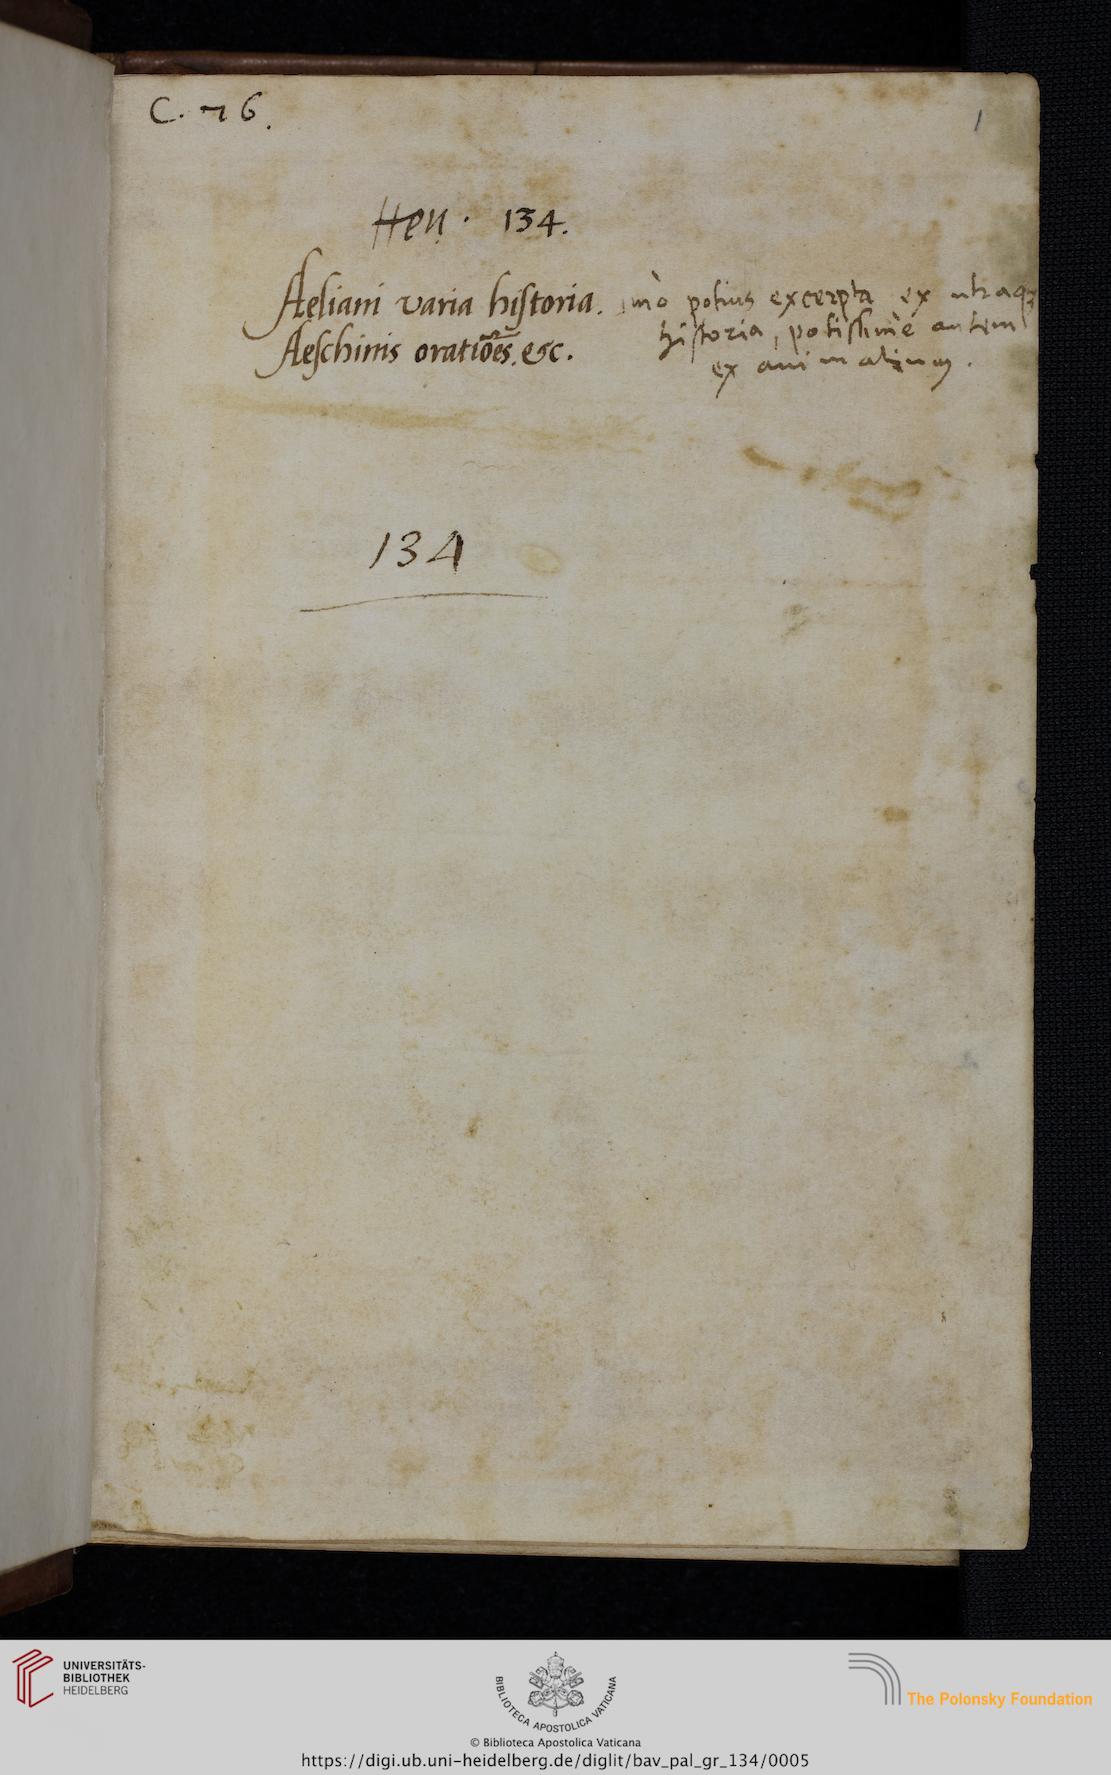 C. 76.
1
Hen. 134.
Aeliani varia historia. imò potius excerpta ex utraqꝫ
historia, potissimè autem
Aeschinis oratiões. etc.
ex animalium.
134
UNIVERSITÄTS-
BIBLIOTHEK
HEIDELBERG
BIBLIOTECA APOSTOLICA VATICANA
The Polonsky Foundation
© Biblioteca Apostolica Vaticana
https://digi.ub.uni-heidelberg.de/diglit/bav_pal_gr_134/0005